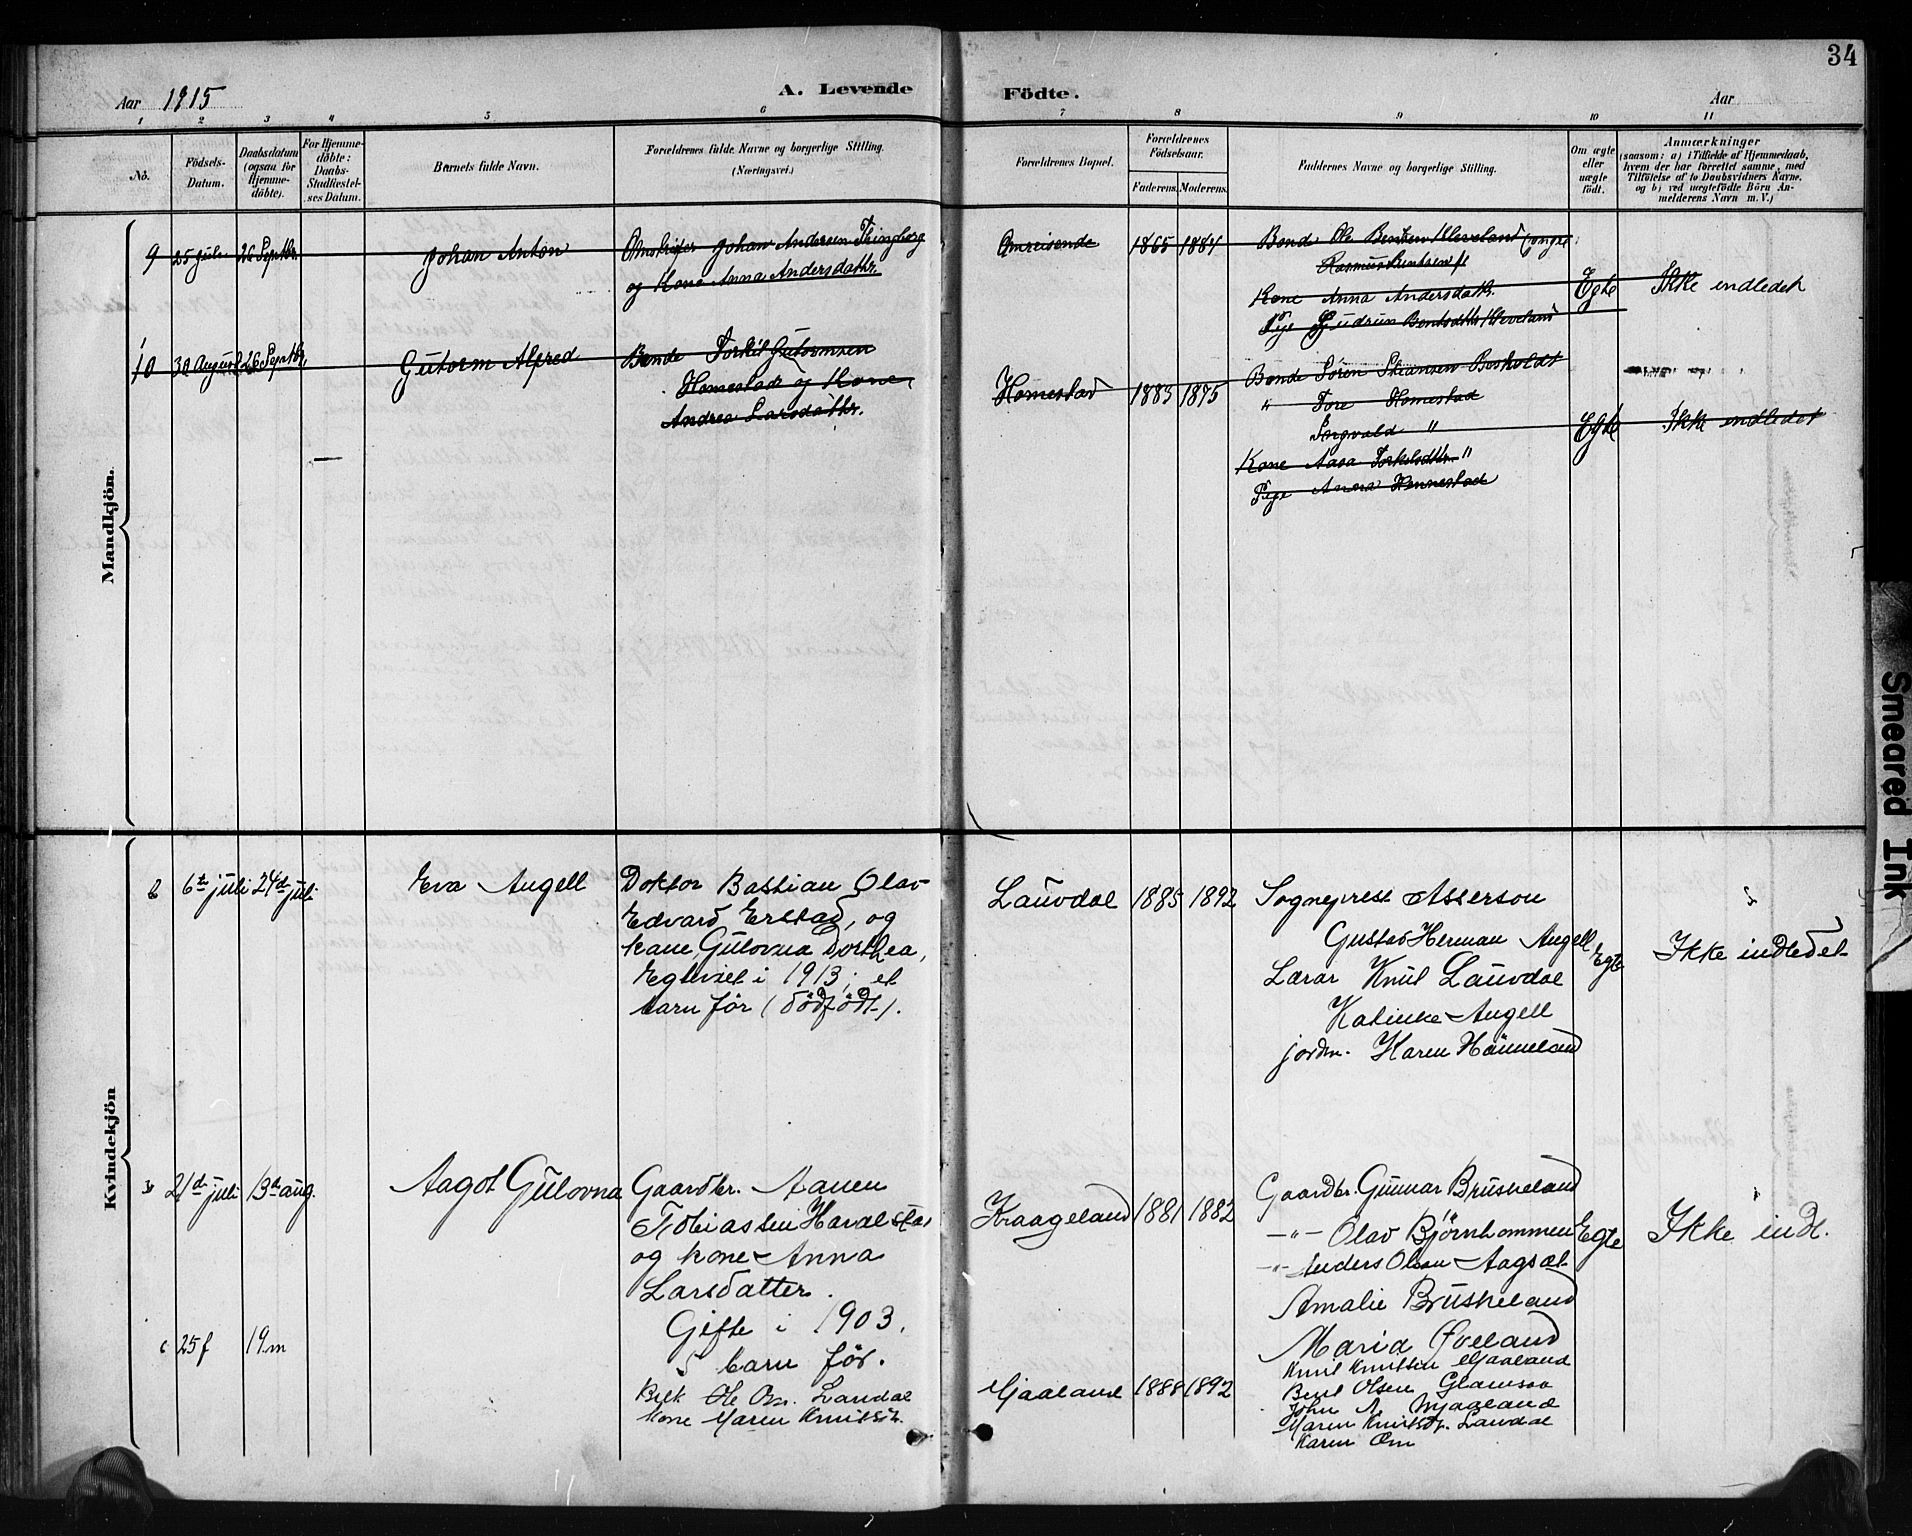 34
Aar 1915
A. Levende Födte.
Aar
1 2 3 4 5 6 7 8 9 10 11
No.
Födsels-Datum.
Daabsdatum (ogsaa for Hjemme-döbte).
For Hjemme-döbte: Daabs-Stadfæstel-ses Datum.
Barnets fulde Navn.
Forældrenes fulde Navne og borgerlige Stilling.
(Næringsvei.)
Forældrenes Bopæl.
Forældrenes Födselsaar.
Faderens. Moderens.
Faddernes Navne og borgerlige Stilling.
Om ægte eller uægte födt.
Anmærkninger
(saasom: a) i Tilfælde af Hjemmedaab,
hvem der har forrettet samme, med
Tilföielse af to Daabsvidners Navne,
og b) ved uægtefödte Börn An-
melderens Navn m. V.)
Mandkjön.
9 25 juli 26 Septbr. Johan Anton
Johan Andersen Thingborg
og Kone Anna Andersdattr.
Omreisende 1865 1884
Bonde Ole Bentsen Kleveland
Rasmus Bentsen
Kone Anna Andersdattr.
Pige Gudrun Bentsdattr Kleveland
Egte Ikke indledet
10 30 August 26 Septbr. Gutorm Alfred
Bonde Torkil Gutormsen
Homestad og Kone
Andrea Larsdattr.
Homestad 1883 1875
Bonde Sören
" Tore Homestad
Torgvald "
Kone Aasa Torkilsdttr. "
Pige Anna Homestad
Egte Ikke indledet
Kvindekjön
6te juli 24de juli Eva Angell
Doktor Bastian Olav
Edvard Erstad, og
kone Gulovna Dorthea,
Egteviet i 1913; et
barn för (dödfödt).
Lauvdal 1885 1892
Sogneprest Asserson
Gustav Herman Angell
Lærar Knut Lauvdal
Katinke Angell
jordm. Karen Hauneland
Egte Ikke indledet
21de juli 13de aug. Aagot Gulovna
Gaardbr. Aanen
Tobiassen Haralstad
og kone Anna
Larsdatter.
Gifte i 1903.
5 barn för.
Kraageland 1881 1882
Gaardbr. Gunnar Bruskeland
-"- Olav Björnhommen
-"- Anders Olsen Aagsæt
Amalie Bruskeland
Maria Øveland
Egte Ikke indl.
25 f 19 m
Ole Om. Lauvdal
kone Maren Knutsdt.
Mjaaland 1888 1892
Knut Knutsen Mjaaland
Bent Olsen Glamsaa
John A. Mjaaland
Maren Knutsdt. Lauvdal
Karen Om
Smeared Ink